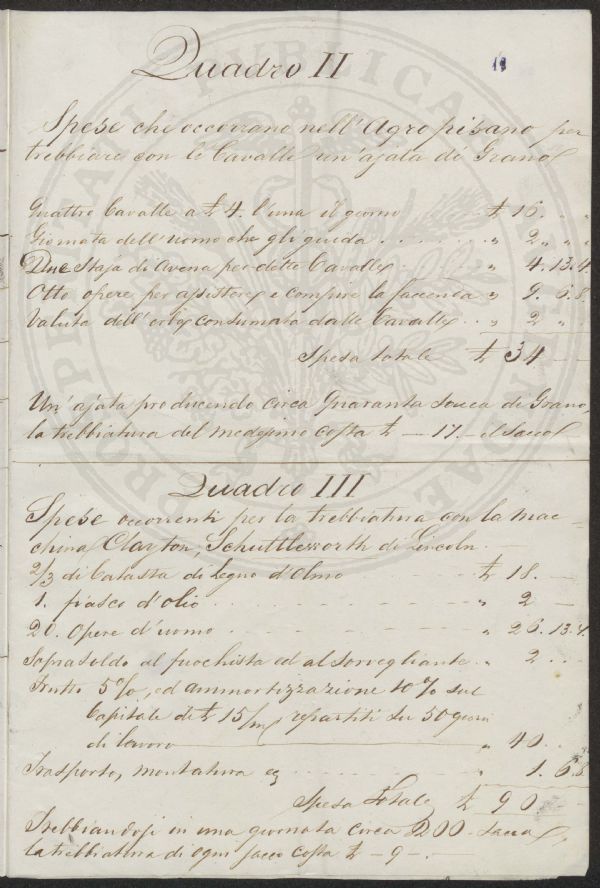 Quadro II
Spese che occorrano nell'Agro pisano per
trebbiare con le Cavalle un'ajata di Grano
Quattro Cavalle a £ 4. l'una il giorno £ 16. " "
Giornata dell'uomo che gli guida " 2 " "
Due Staja di Avena per dette Cavalle " 4. 13. 4.
Otto opere per assistere e compire la faccenda " 9. 6. 8.
Valuta dell'erba consumata dalle Cavalle " 2 " "
Spesa totale £ 34 — —
Un'ajata producendo circa Quaranta sacca di Grano,
la trebbiatura del medesimo costa £ — 17. — il sacco
Quadro III
Spese occorrenti per la trebbiatura con la mac-
china Clayton, Schuttleworth di Lincoln.
2/3 di Catasta di legno d'Olmo £ 18. —
1. fiasco d'olio " 2 —
20. Opere d'uomo " 26. 13. 4.
Soprasoldo al fuochista ed al sorvegliante " 2
Frutto 5%, ed ammortizzazione 10% sul
Capitale di £ 15/m repartiti su 50 giorni
di lavoro " 40
Trasporto, montatura " 1. 6. 8.
Spesa Totale £ 90 —
Trebbiandosi in una giornata circa 200 Sacca,
la trebbiatura di ogni sacco costa £ — 9 — . —
PROSPERITATI PUBLICAE AUGENDAE